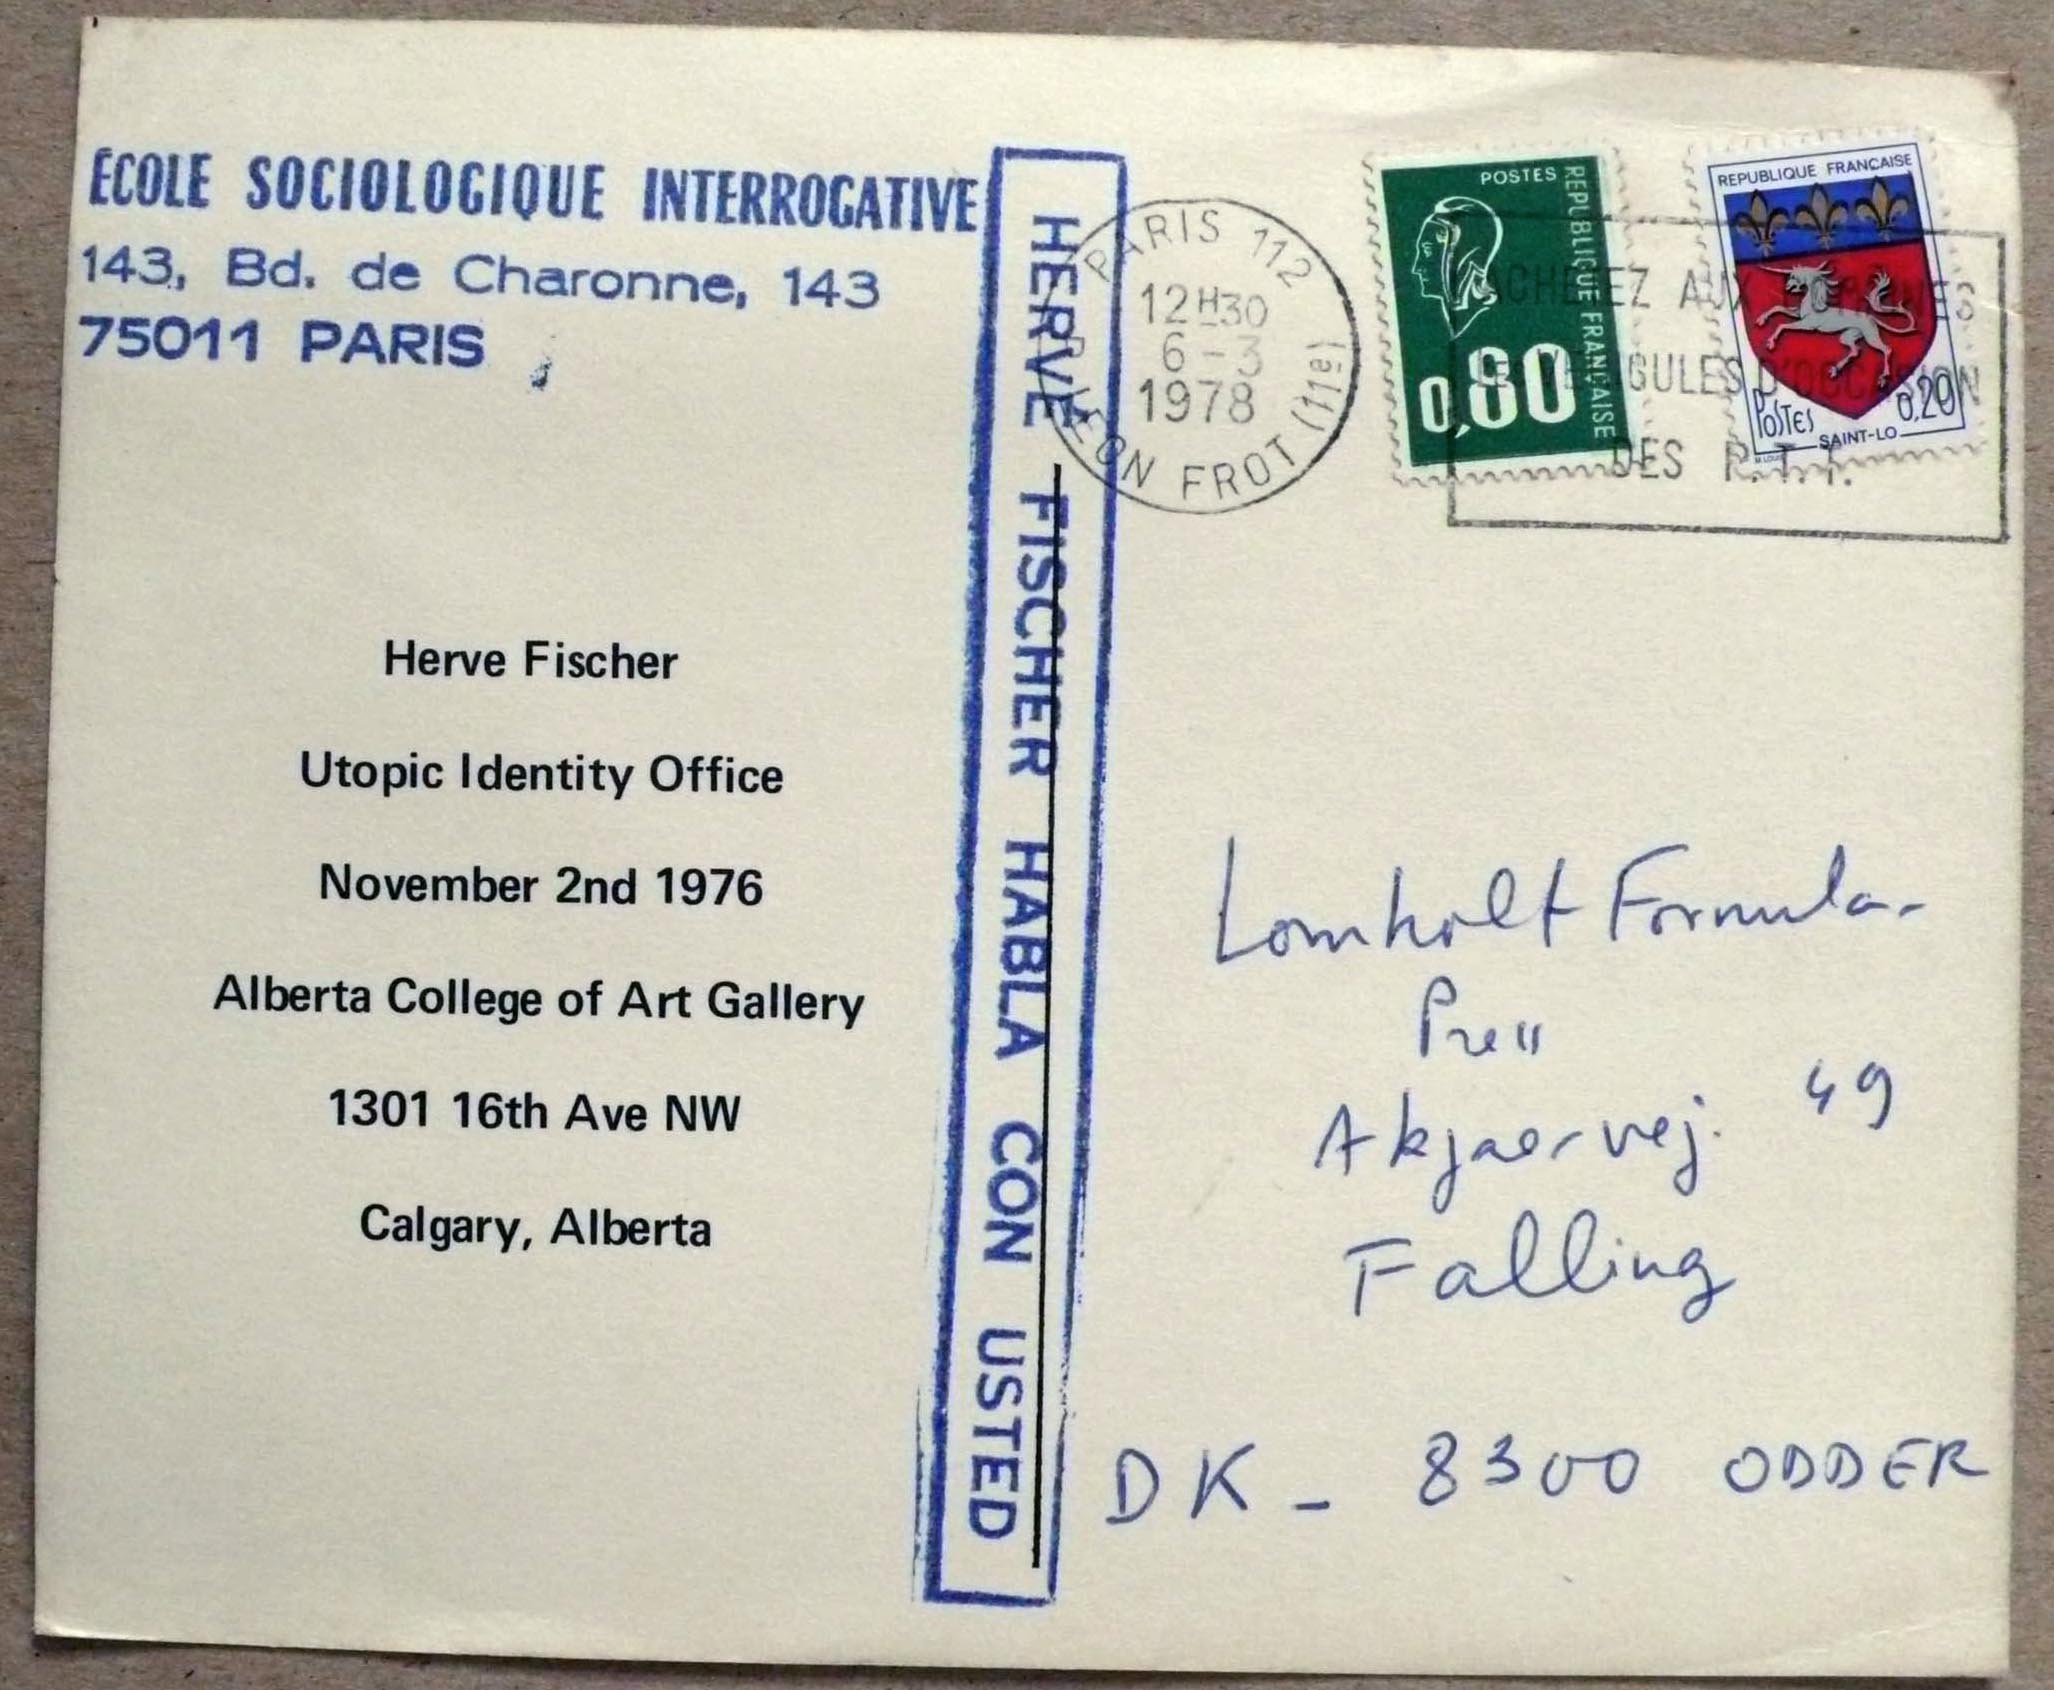 ECOLE SOCIOLOGIQUE INTERROGATIVE
143, Bd. de Charonne, 143
75011 PARIS
Herve Fischer
Utopic Identity Office
November 2nd 1976
Alberta College of Art Gallery
1301 16th Ave NW
Calgary, Alberta
HERVÉ FISCHER HABLA CON USTED
PARIS 112
12H30
6-3
1978
LEON FROT (11è)
POSTES
REPUBLIQUE FRANÇAISE
0,80
REPUBLIQUE FRANÇAISE
POSTES
0,20
SAINT-LO
ACHETEZ AUX
D'OCCASION
DES P.T.T.
Lomholt Formular
Press
Akjaervej. 49
Falling
DK - 8300 ODDER